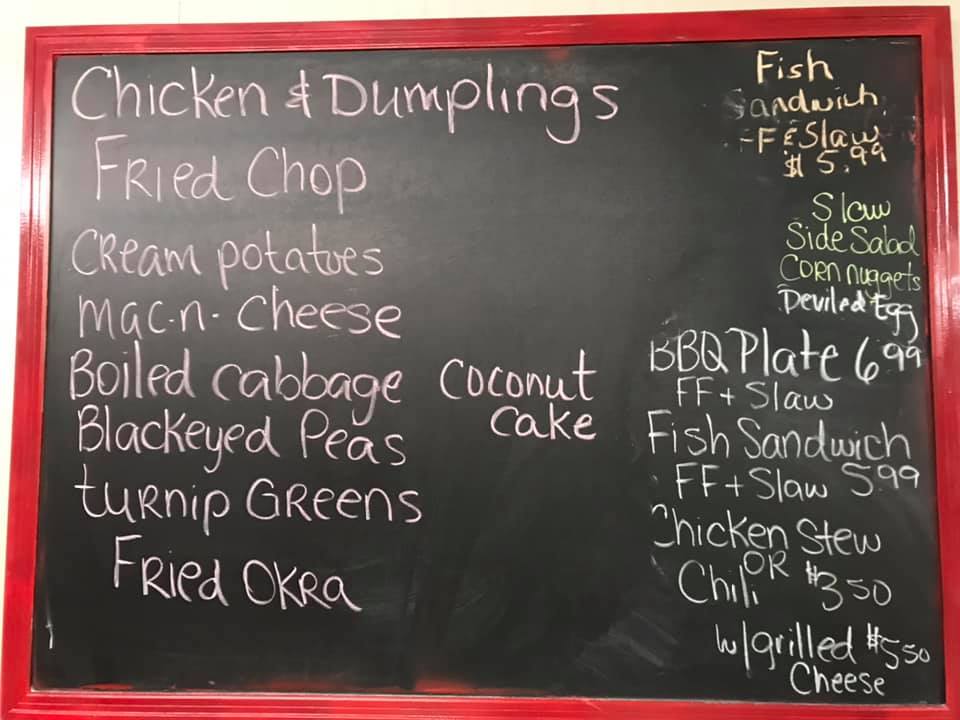 Chicken & Dumplings
Fried Chop
Cream potatoes
Mac-n-Cheese
Boiled Cabbage
Blackeyed Peas
turnip Greens
Fried Okra
Coconut
Cake
Fish
Sandwich
FF & Slaw
$5.99
Slaw
Side Salad
Corn nuggets
Deviled Egg
BBQ Plate 6.99
FF + Slaw
Fish Sandwich
FF + Slaw 5.99
Chicken Stew
OR
Chili $3.50
w/grilled $5.50
Cheese